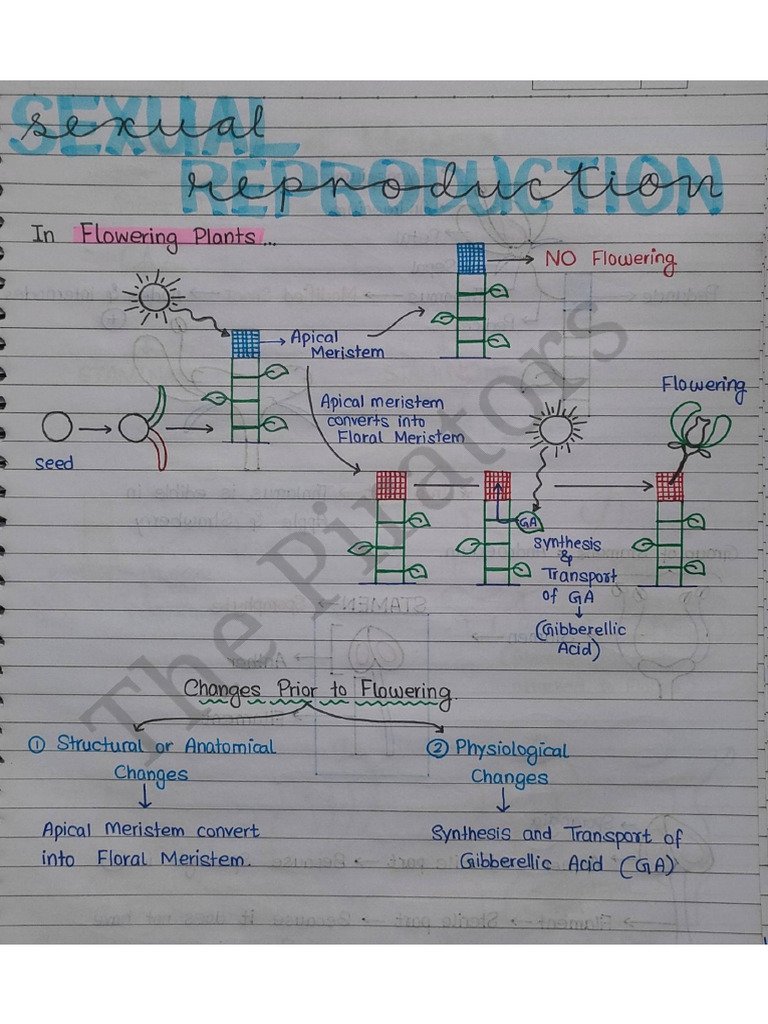 SEXUAL
sexual
REPRODUCTION
reproduction
In Flowering Plants...
NO Flowering
Apical
Meristem
Flowering
Apical meristem
converts into
Floral Meristem
seed
GA
Synthesis
&
Transport
of GA
(Gibberellic
Acid)
The Pinators
Changes Prior to Flowering
① Structural or Anatomical
Changes
② Physiological
Changes
Apical Meristem convert
into Floral Meristem.
Synthesis and Transport of
Gibberellic Acid (GA)